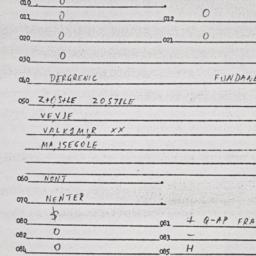 010 0
011 0 012 0
020 0 021 0
030 0
040 DERGRENIC FUNDAME
050
VEVJE
VALKSMIR XX
MAJSEGOLE
060 NONT
070 NENTER
080 081 + G-AP FRA
082 0 083 –
084 0 085 H